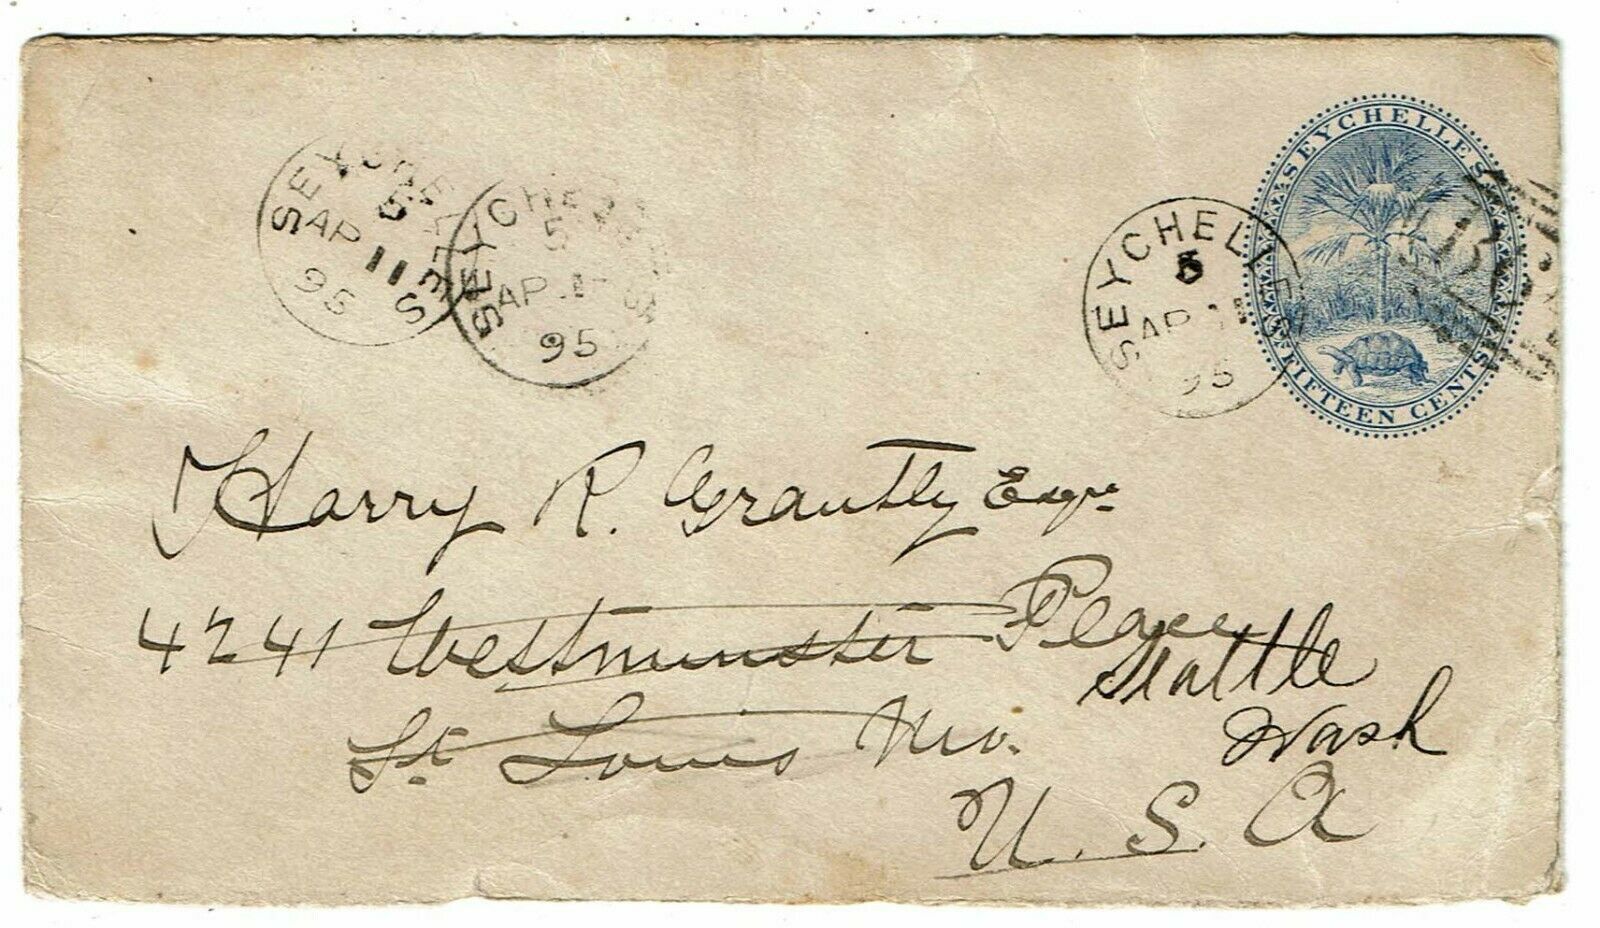 SEYCHELLES
5
AP 11
95
SEYCHELLES
5
AP 1
95
SEYCHELLES
5
AP 11
95
SEYCHELLES
FIFTEEN CENTS
B
Harry R. Grantly Esqre
4241 Westminster Place
Seattle
St Louis Mo.
Wash
U.S.A